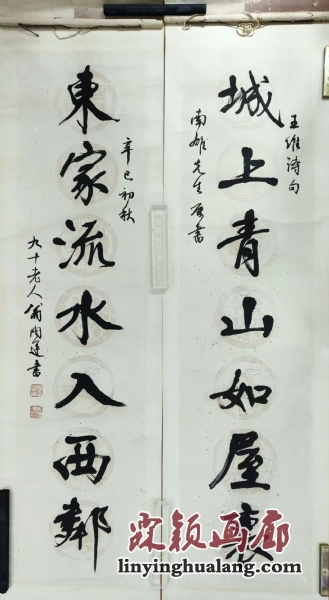 王維詩句
城上青山如屋裏
南雄先生屬書
東家流水入西鄰
辛巳初秋
九十老人翁闓運書
霖颖画廊
linyinghualang.com